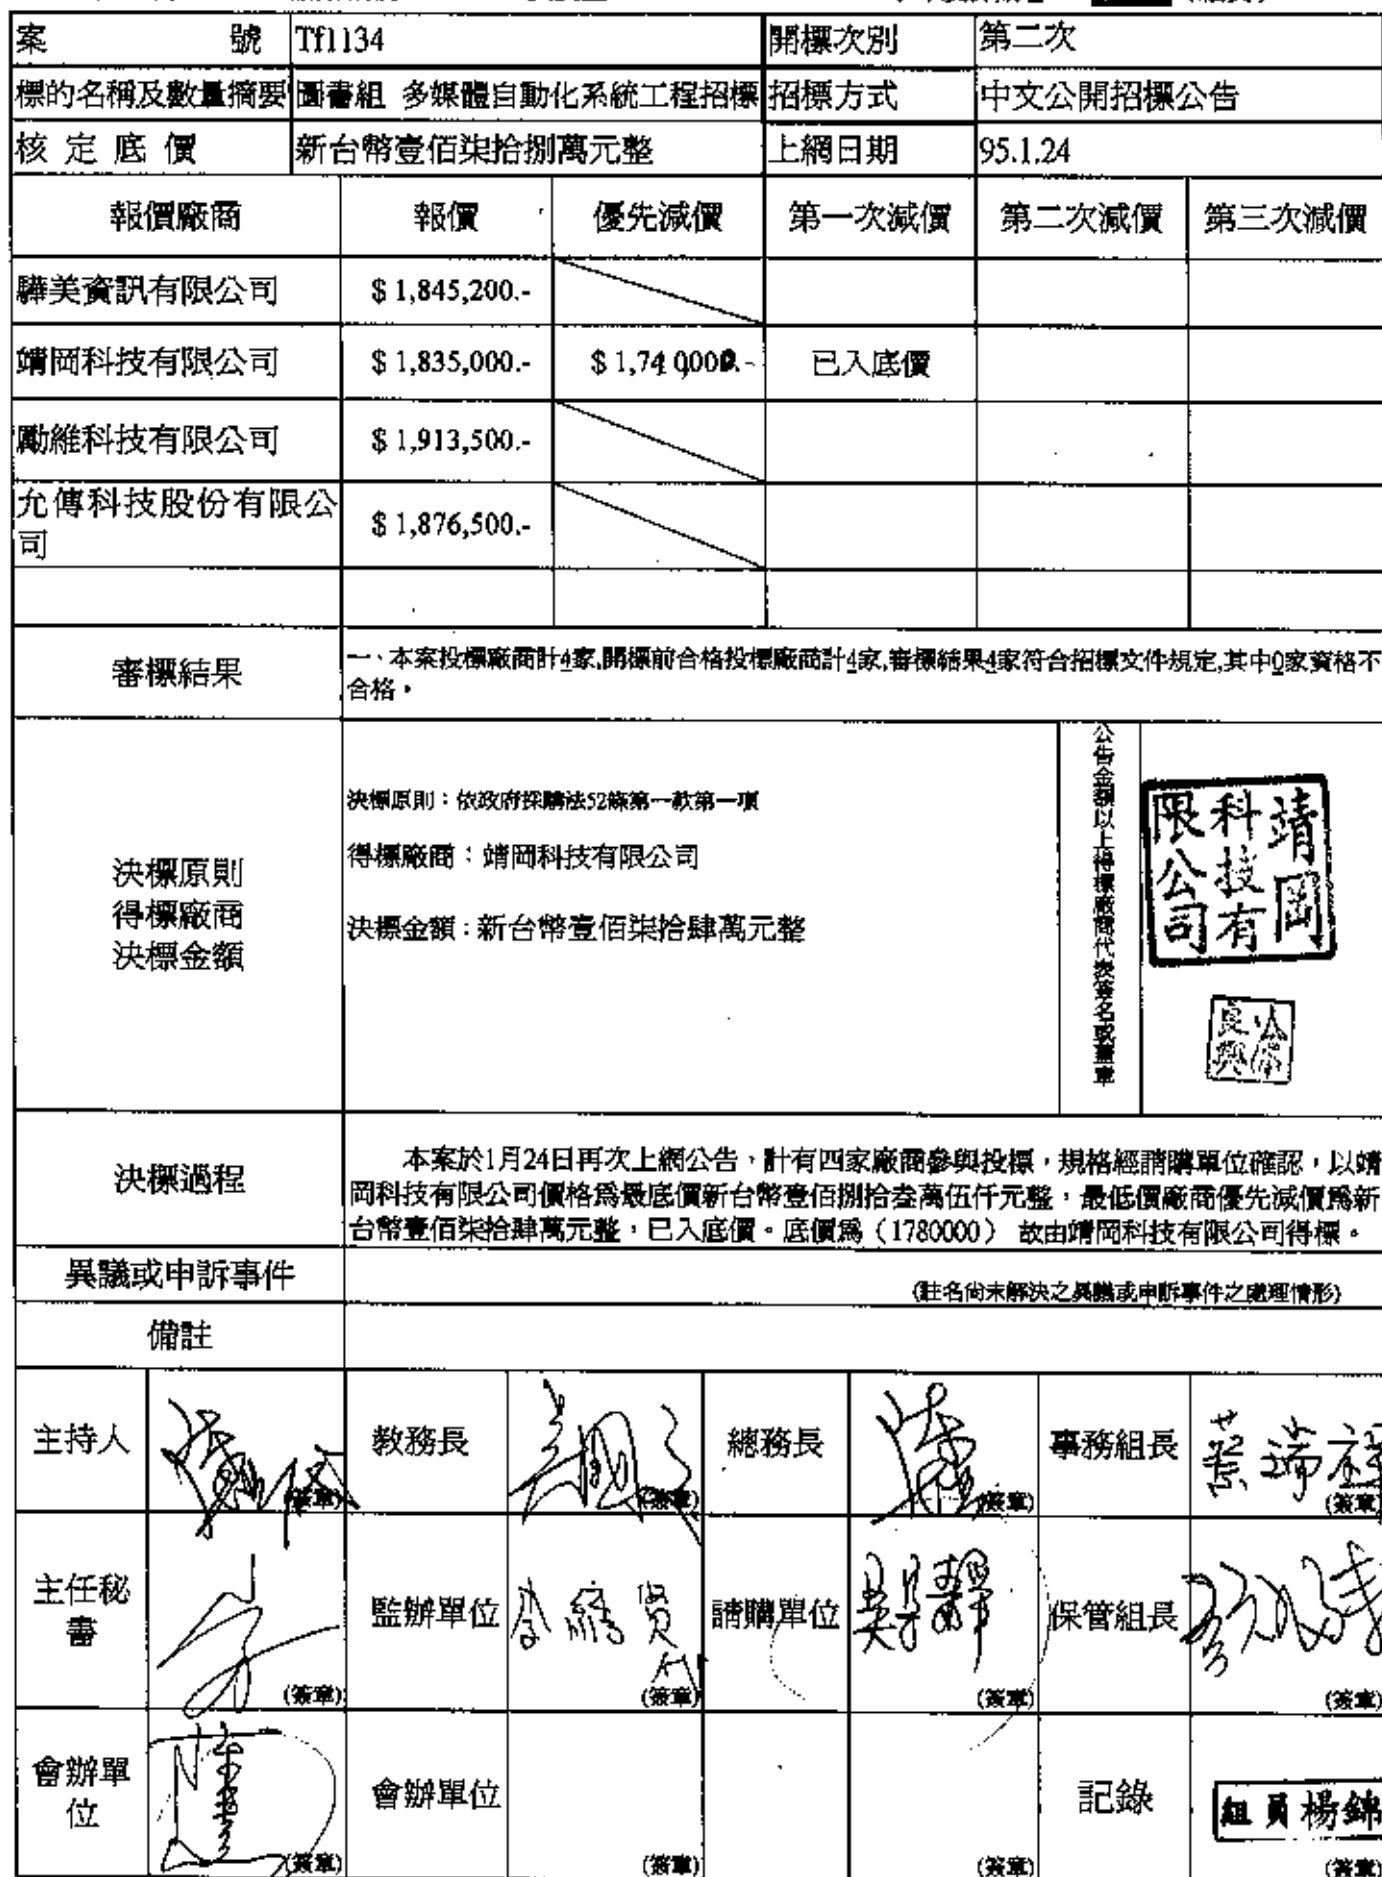 案 號 Tf1134 開標次別 第二次
標的名稱及數量摘要 圖書組 多媒體自動化系統工程招標 招標方式 中文公開招標公告
核定底價 新台幣壹佰柒拾捌萬元整 上網日期 95.1.24
報價廠商 報價 優先減價 第一次減價 第二次減價 第三次減價
驊美資訊有限公司 $ 1,845,200.-
靖岡科技有限公司 $ 1,835,000.- 已入底價
勵維科技有限公司 $ 1,913,500.-
允傳科技股份有限公
司 $ 1,876,500.-
審標結果 一、本案投標廠商計4家,開標前合格投標廠商計4家,審標結果4家符合招標文件規定,其中0家資格不
合格。
決標原則
得標廠商
決標金額
決標原則：依政府採購法52條第一款第一項
得標廠商：靖岡科技有限公司
決標金額：新台幣壹佰柒拾肆萬元整
公告金額以上得標廠商代表簽名或蓋章
靖岡
科技有
限公司
決標過程
本案於1月24日再次上網公告，計有四家廠商參與投標，規格經請購單位確認，以靖
岡科技有限公司價格爲最底價新台幣壹佰捌拾叁萬伍仟元整，最低價廠商優先減價爲新
台幣壹佰柒拾肆萬元整，已入底價。底價爲（1780000） 故由靖岡科技有限公司得標。
異議或申訴事件 (註名尚未解決之異議或申訴事件之處理情形)
備註
主持人 (簽章) 教務長 (簽章) 總務長 (簽章) 事務組長 (簽章)
主任秘
書 (簽章) 監辦單位 (簽章) 請購單位 (簽章) 保管組長 (簽章)
會辦單
位 (簽章) 會辦單位 (簽章) (簽章) 記錄 組員楊錦 (簽章)